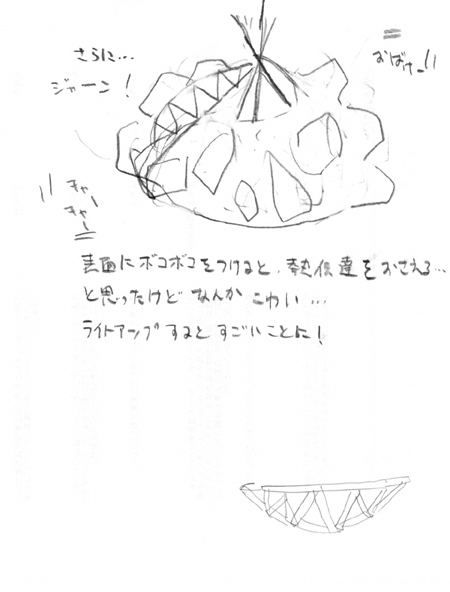 さらに…
ジャーン!
おばけー!!
キャー
キャー
表面にボコボコをつけると、熱伝達をおさえる…
と思ったけどなんかこわい…
ライトアップするとすごいことに!